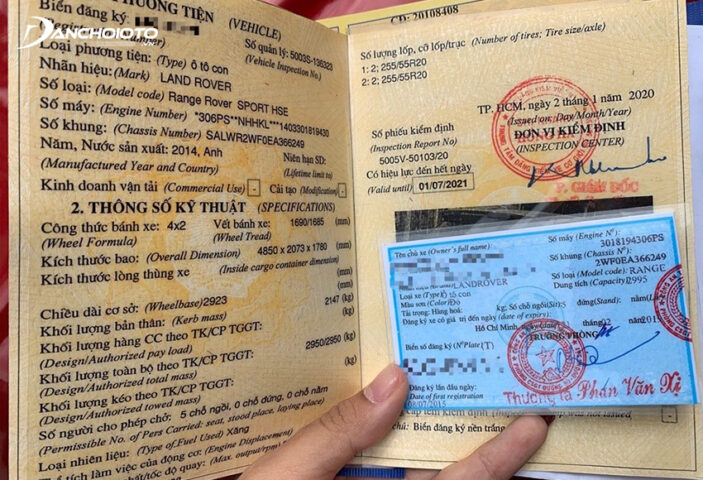 DANCHOIOTO
.VN
PHƯƠNG TIỆN (VEHICLE)
Biển đăng ký
Số quản lý: 5003S-136323
(Vehicle Inspection No.)
Loại phương tiện: (Type) ô tô con
Nhãn hiệu: (Mark) LAND ROVER
Số loại: (Model code) Range Rover SPORT HSE
Số máy: (Engine Number) *306PS**NHHKL***1403301819430
Số khung: (Chassis Number) SALWR2WF0EA366249
Năm, Nước sản xuất: 2014, Anh
Niên hạn SD:
(Manufactured Year and Country)
(Lifetime limit to)
Kinh doanh vận tải (Commercial Use) - Cải tạo (Modification) -
2. THÔNG SỐ KỸ THUẬT (SPECIFICATIONS)
Công thức bánh xe: 4x2 Vết bánh xe: 1690/1685 (mm)
(Wheel Formula) (Wheel Tread)
Kích thước bao: (Overall Dimension) 4850 x 2073 x 1780 (mm)
Kích thước lòng thùng xe (mm)
(Inside cargo container dimension)
Chiều dài cơ sở: (Wheelbase) 2923
Khối lượng bản thân: (Kerb mass) 2147 (kg)
Khối lượng hàng CC theo TK/CP TGGT: (kg)
(Design/Authorized pay load)
Khối lượng toàn bộ theo TK/CP TGGT: 2950/2950 (kg)
(Design/Authorized total mass)
Khối lượng kéo theo TK/CP TGGT: (kg)
(Design/Authorized towed mass)
Số người cho phép chở: 5 chỗ ngồi, 0 chỗ đứng, 0 chỗ nằm
(Permissible No. of Pers Carried: seat, stood place, laying place)
Loại nhiên liệu: (Type of Fuel Used) Xăng
Thể tích làm việc của động cơ: (Engine Displacement)
CD: 20108408
Số lượng lốp, cỡ lốp/trục (Number of tires; Tire size/axle)
1: 2; 255/55R20
2: 2; 255/55R20
TP. HCM, ngày 2 tháng 1 năm 2020
(Issued on: Day/Month/Year)
Số phiếu kiểm định
ĐƠN VỊ KIỂM ĐỊNH
(Inspection Report No)
(INSPECTION CENTER)
5005V-50103/20
Có hiệu lực đến hết ngày
(Valid until) 01/07/2021
P. GIÁM ĐỐC
Tên chủ xe (Owner's full name):
Số máy (Engine Nº):
3018194306PS
Số khung (Chassis Nº):
2WF0EA366249
LANDROVER
Số loại (Model code): RANGE
Loại xe (Type) ô tô con
Dung tích (Capacity) 2995
Màu sơn (Color)
Tải trọng: Hàng hoá: kg; Số chỗ ngồi 5 đứng (Stand): nằm
Đăng ký xe có giá trị đến ngày (date of expiry):
Hồ Chí Minh, ngày
TRƯỞNG PHÒNG
Biển số đăng ký (Nº Plate)
Đăng ký lần đầu ngày:
Date of first registration
08/07/2015
Thượng tá Phan Văn
was not issued
Chú: Biển đăng ký nền trắng